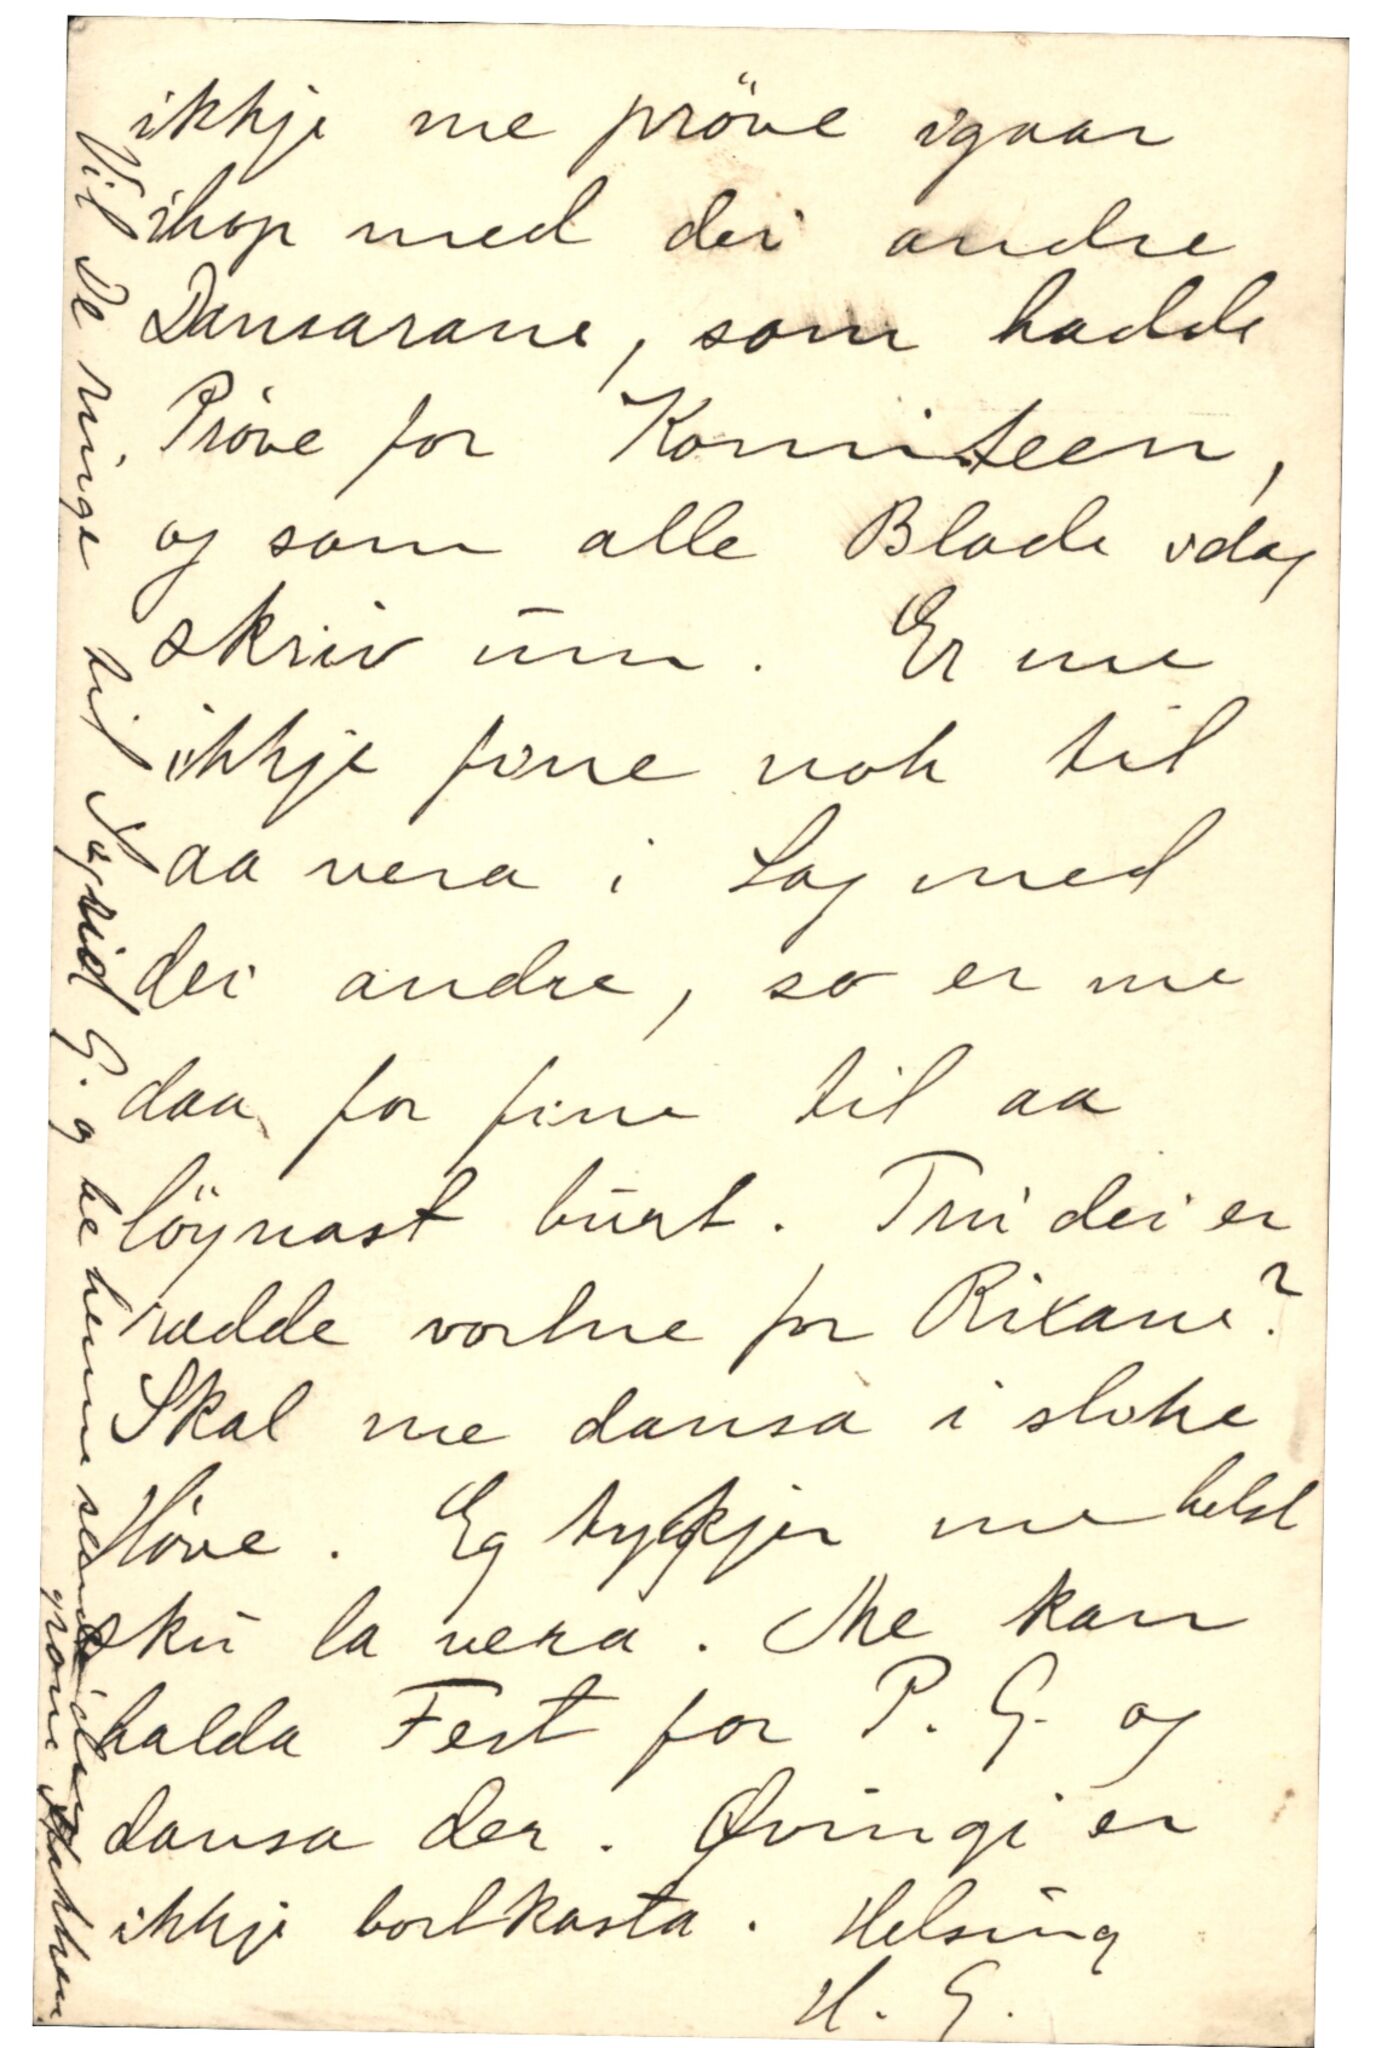 ikkje me pröve igaar
ihop med dei andre
Dansarane, som hadde
Pröve for Komiteen,
og som alle Blade idag
skriv um. Er me
ikkje fine nok til
aa vera i Lag med
dei andre, so er me
daa for fine til aa
löynast burt. Trui dei er
rædde vortne for Rixane?
Skal me dansa i slike
Höve. Eg tykkjer me helst
sku la vera. Me kan
halda Fest for P. G. og
dansa der. Øvingi er
ikkje bortkasta. Helsing
H. G.
Vil De ringe til Sigrid G. og be henne sende
grøne